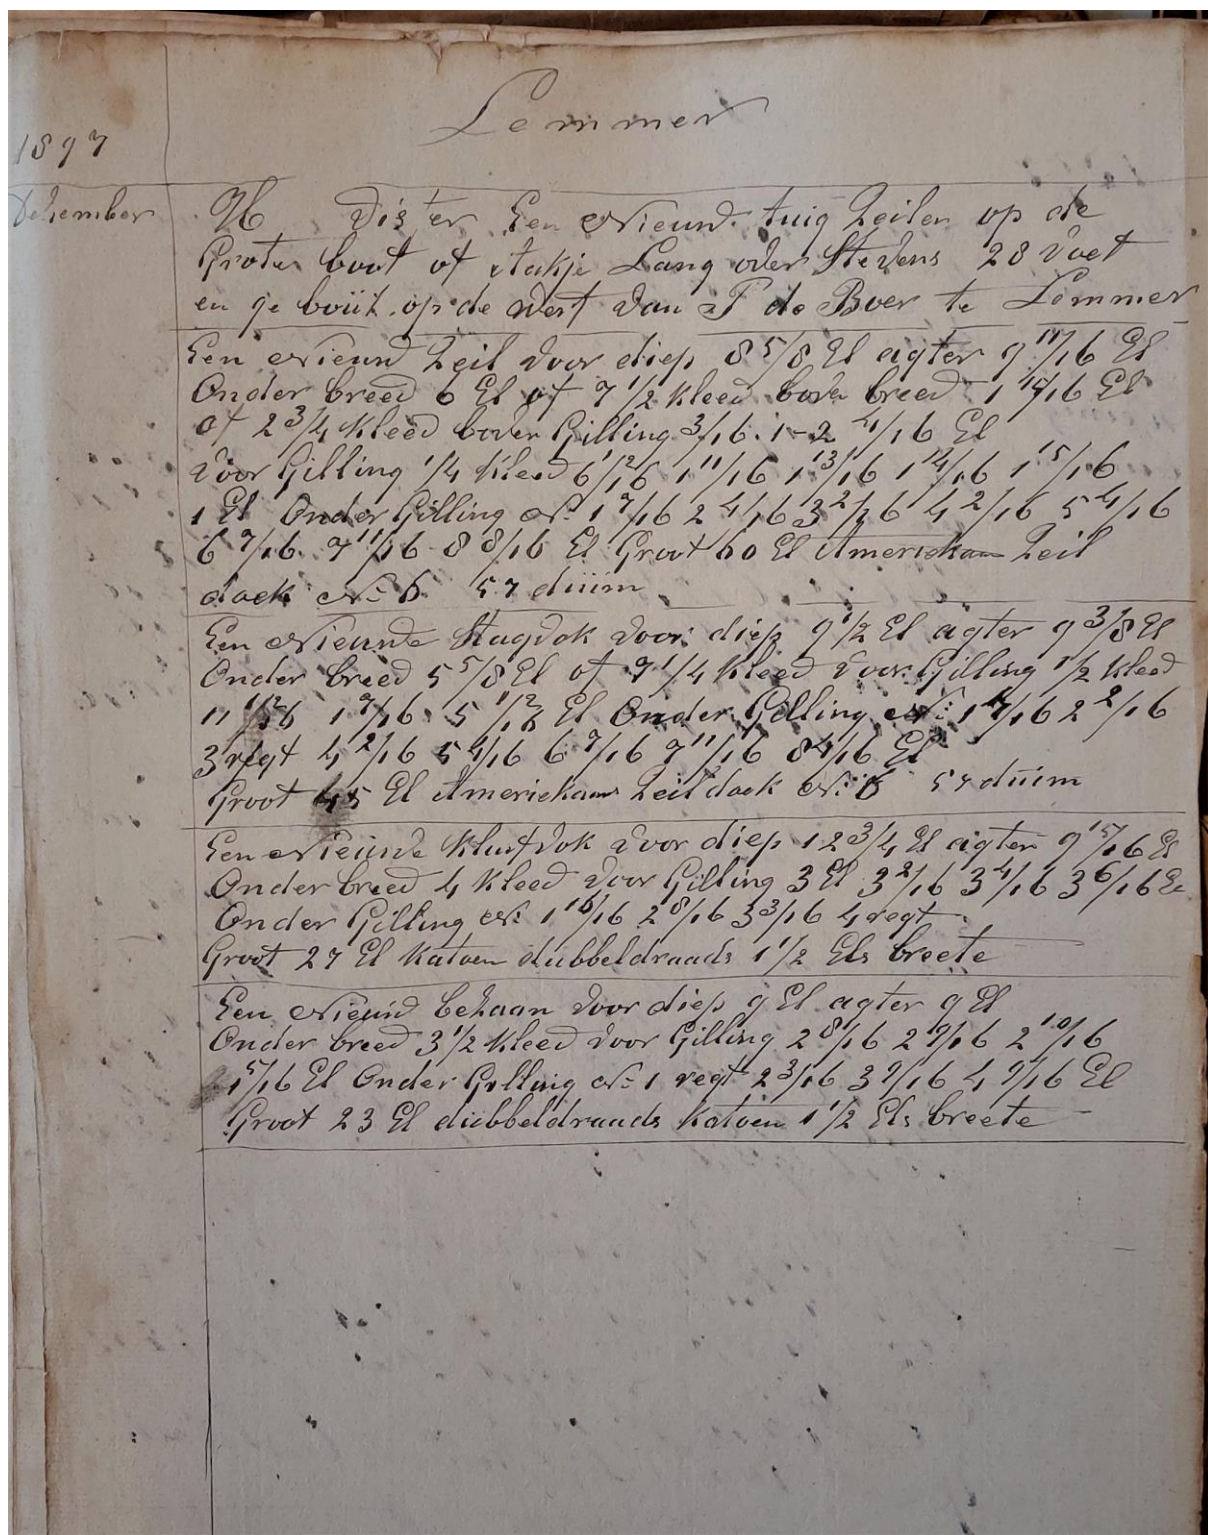 Lemmer
1897
Dehember
H Visser Een Nieuwd tuig Zeilen op de
Grote boot of Aakje Lang over Stevens 28 voet
en ge boüt op de Werf van P de Boer te Lemmer
Een Nieuwd Zeil voor diep 8 5/8 El agter 9 11/16 El
Onder breed 6 El of 7 1/2 kleed boven breed 1 15/16 El
of 2 3/4 kleed boven Gilling 3/16 1-2 4/16 El
voor Gilling 1/4 kleed 6 12/16 1 11/16 1 13/16 1 14/16 1 15/16
1 El Onder Gilling No 1 7/16 2 4/16 3 2/16 4 2/16 5 4/16
6 7/16 7 11/16 8 8/16 El Groot 60 El Americkaan Zeil
doek No 6 57 duim
Een Nieuwde Stagvok voor diep 9 1/2 El agter 9 3/8 El
Onder breed 5 5/8 El of 7 1/4 kleed voor Gilling 1/2 kleed
11 12/16 1 7/16 5 12/16 El Onder Gilling No 1 7/16 2 2/16
3 regt 4 2/16 5 4/16 6 7/16 7 11/16 8 4/16 El
Groot 45 El Americkaans Zeildoek No 6 57 duim
Een Nieuwde Kluifvok voor diep 12 3/4 El agter 9 15/16 El
Onder breed 4 kleed voor Gilling 3 El 3 2/16 3 4/16 3 6/16 El
Onder Gilling No 1 16/16 2 8/16 3 3/16 4 regt
Groot 27 El Katoen dubbeldraads 1 1/2 Els breete
Een Nieuwd behaan voor diep 9 El agter 9 El
Onder breed 3 1/2 kleed voor Gilling 2 8/16 2 9/16 2 10/16
1 5/16 El Onder Gilling No 1 regt 2 3/16 3 9/16 4 9/16 El
Groot 23 El dubbeldraads Katoen 1 1/2 Els breete